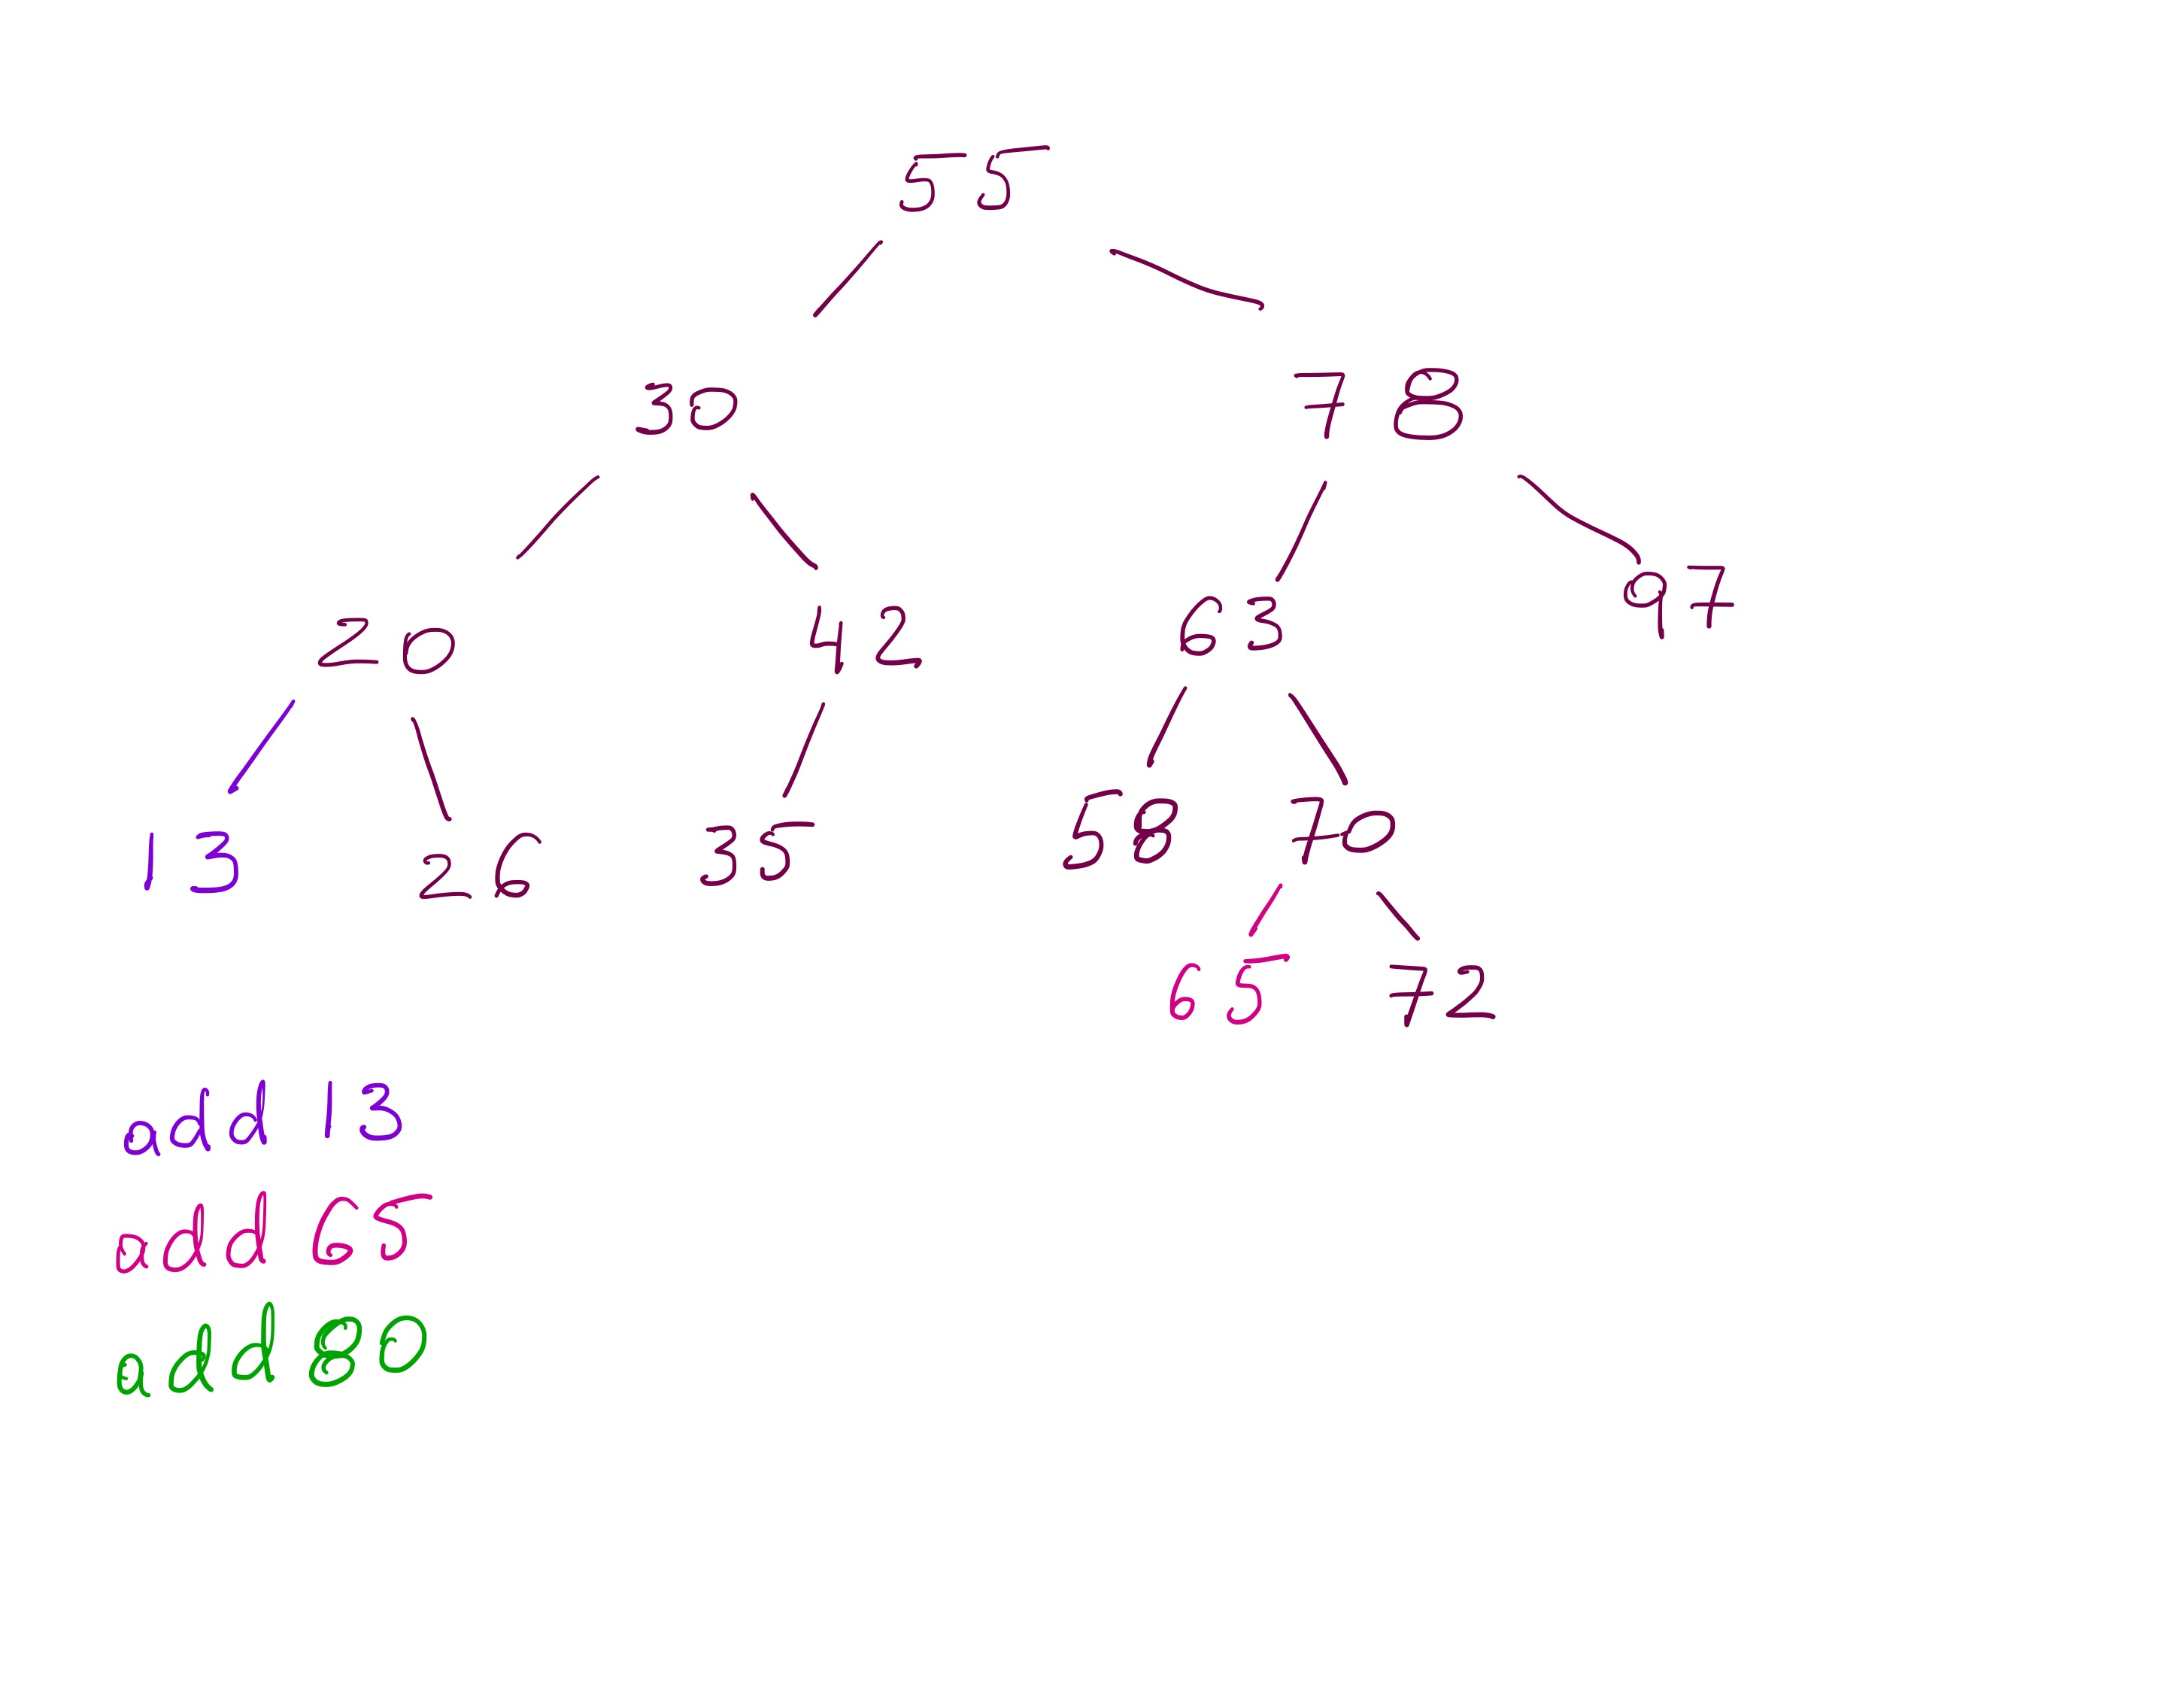 55
30 78
20 42 63 97
13 26 35 58 70
65 72
add 13
add 65
add 80